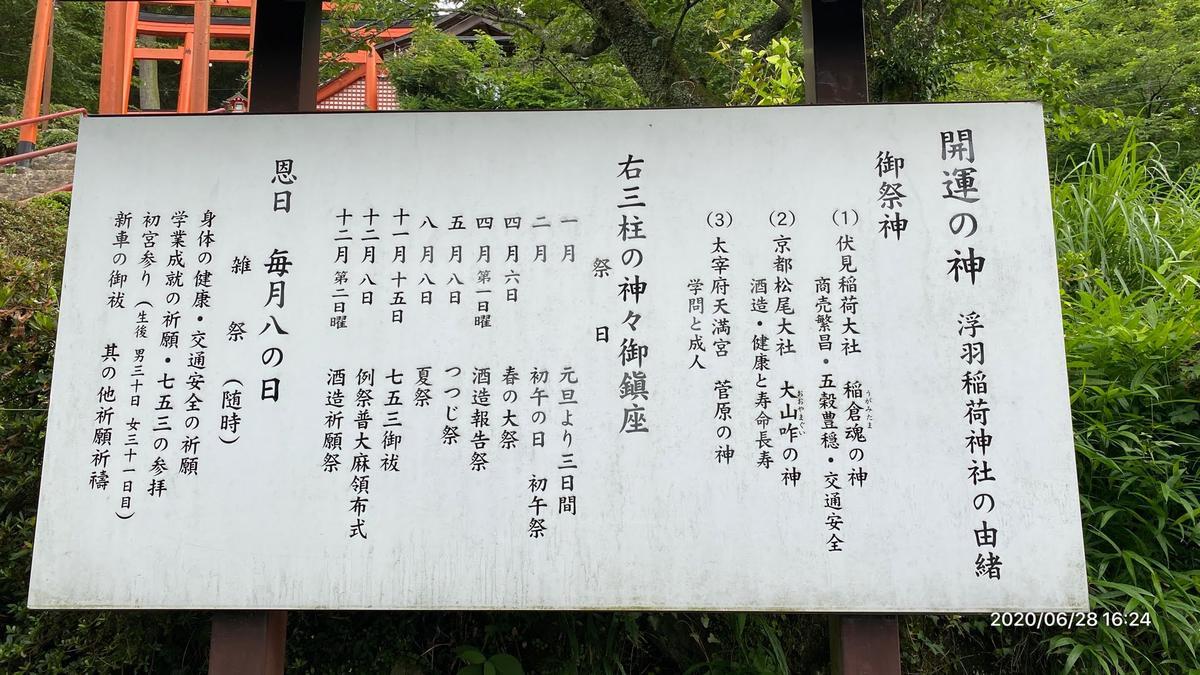 開運の神 浮羽稲荷神社の由緒
御祭神
(1) 伏見稲荷大社 稲倉魂の神
うがみたま
商売繁昌・五穀豊穏・交通安全
(2) 京都松尾大社 大山咋の神
おおやまぐい
酒造・健康と寿命長寿
(3) 太宰府天満宮 菅原の神
学問と成人
右三柱の神々御鎮座
祭日
一月 元旦より三日間
二月 初午の日 初午祭
四月六日 春の大祭
四月第一日曜 酒造報告祭
五月八日 つつじ祭
八月八日 夏祭
十一月十五日 七五三御祓
十二月八日 例祭普大麻領布式
十二月第二日曜 酒造祈願祭
恩日 毎月八の日
雑祭 (随時)
身体の健康・交通安全の祈願
学業成就の祈願・七五三の参拝
初宮参り(生後 男三十日 女三十一日目)
新車の御祓 其の他祈願祈禱
2020/06/28 16:24